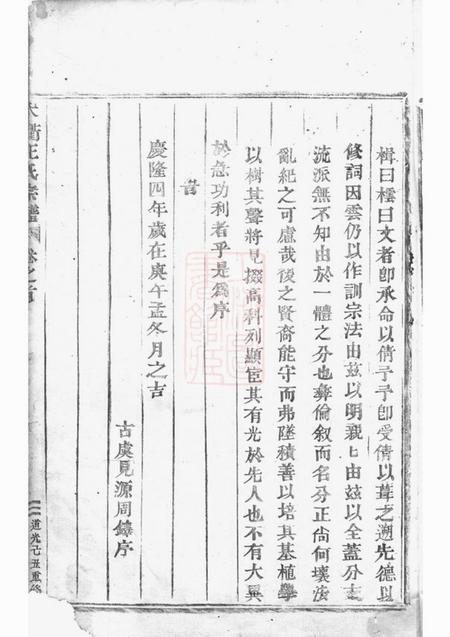 楫曰橒曰文者卽承命以倩予予卽受倩以葺之遡先德以
修詞因雲仍以作訓宗法由茲以明親親由茲以全蓋分支
流派無不知由於一體之分也彝倫叙而名分正尙何壞法
亂紀之可慮哉後之賢裔能守而弗墜積善以培其基植學
以樹其聲將見掇高科列顯宦其有光於先人也不有大異
於急功利者乎是為序
旹
慶隆四年歲在庚午孟冬月之吉
古虞見源周鏻序
大衢王氏宗譜 卷之首
道光己丑重修